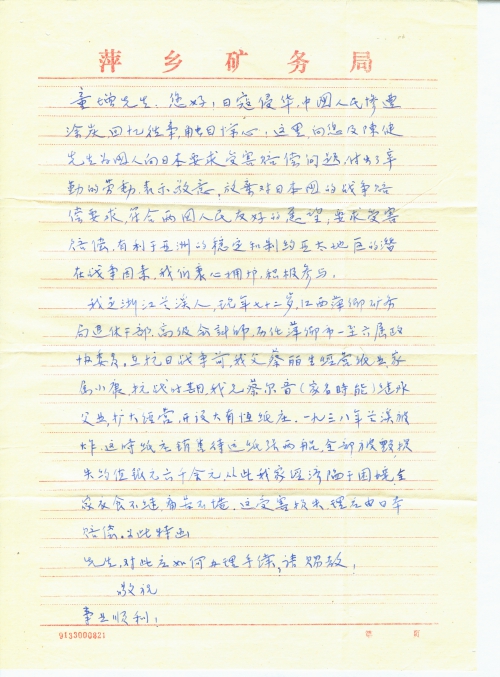 萍乡矿务局
童增先生，您好！日寇侵华，中国人民惨遭
涂炭，回忆往事，触目惊心，这里，向您及陈健
先生为国人向日本要求受害赔偿问题，付出了辛
勤的劳动，表示敬意，放弃对日本国的战争赔
偿要求，符合两国人民友好的愿望，要求受害
赔偿，有利于亚洲的稳定和制约亚太地区的潜
在战争因素，我们衷心拥护，积极参与。
我是浙江兰溪人，现年七十二岁，江西萍乡矿务
局退休干部，高级会计师，历任萍乡市一至六届政
协委员。在抗日战争前，我父蔡丽生经营纸业，家
属小康，抗战时期，我兄蔡尔音（家名时能）继承
父业，扩大经营，开设大有恒纸庄。一九三八年兰溪被
炸，这时纸庄销售待运纸张两船，全部被毁，损
失约值银元六千余元，从此我家经济陷于困境，全
家衣食不继，痛苦不堪。这受害损失，理应由日本
赔偿。为此特函
先生，对此应如何办理手续，请赐教！
敬祝
事业顺利！
9133000821
第 页